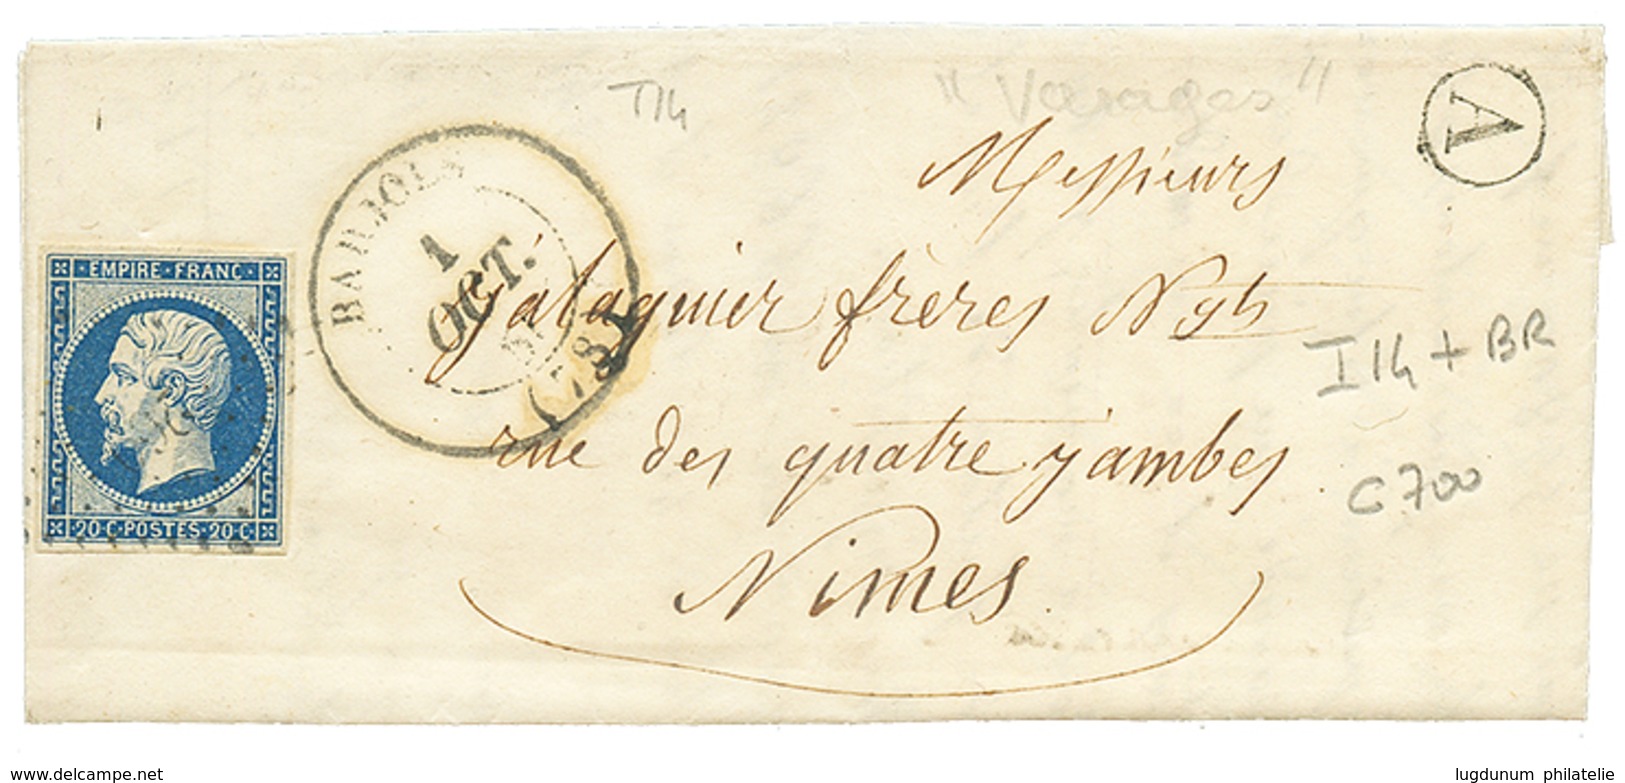 T14
"Varages"
A
Messieurs
BARJOLS
1
OCT.
(78)
Galaguier frères Ngts
EMPIRE · FRANC ·
20·C·POSTES·20·C·
I14 + BR
rue des quatre jambes
C 700
Nimes
www.delcampe.net
lugdunum philatelie